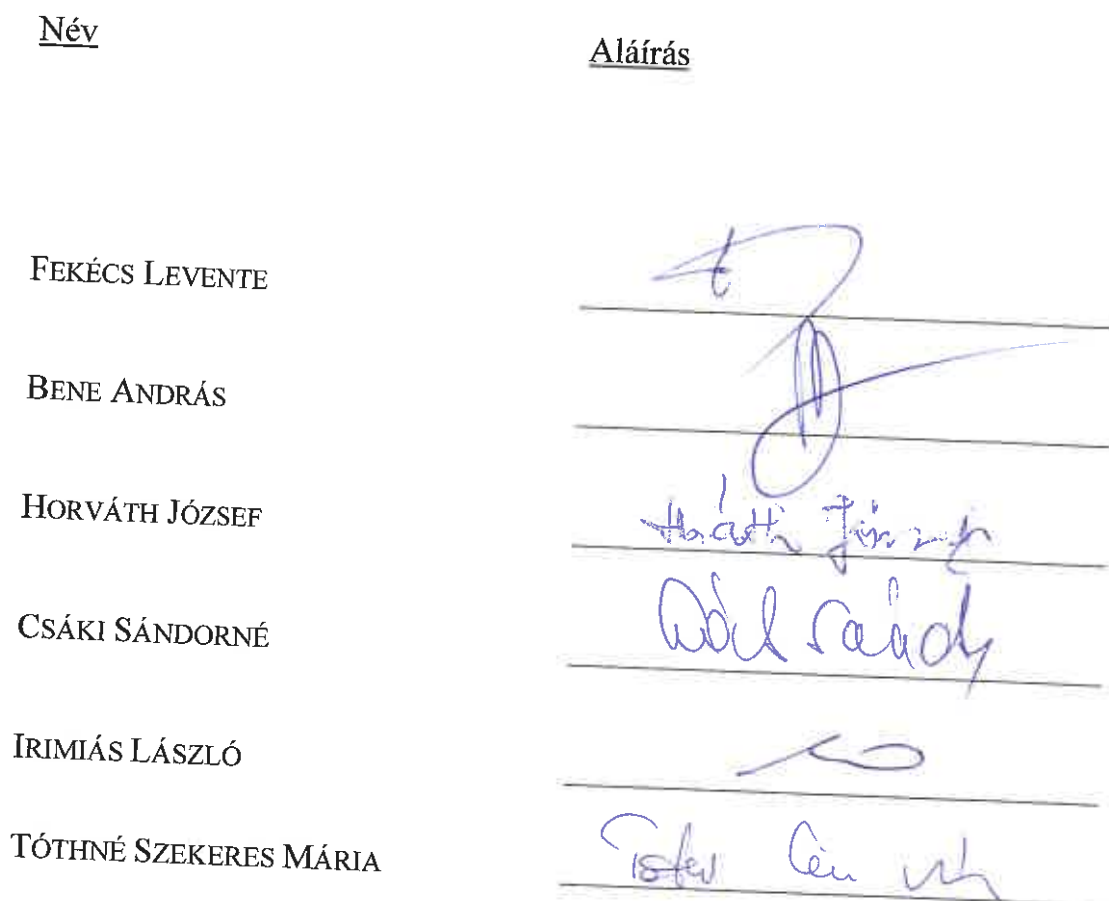 Név
Aláírás
FEKÉCS LEVENTE
BENE ANDRÁS
HORVÁTH JÓZSEF
Horváth József
CSÁKI SÁNDORNÉ
IRIMIÁS LÁSZLÓ
TÓTHNÉ SZEKERES MÁRIA